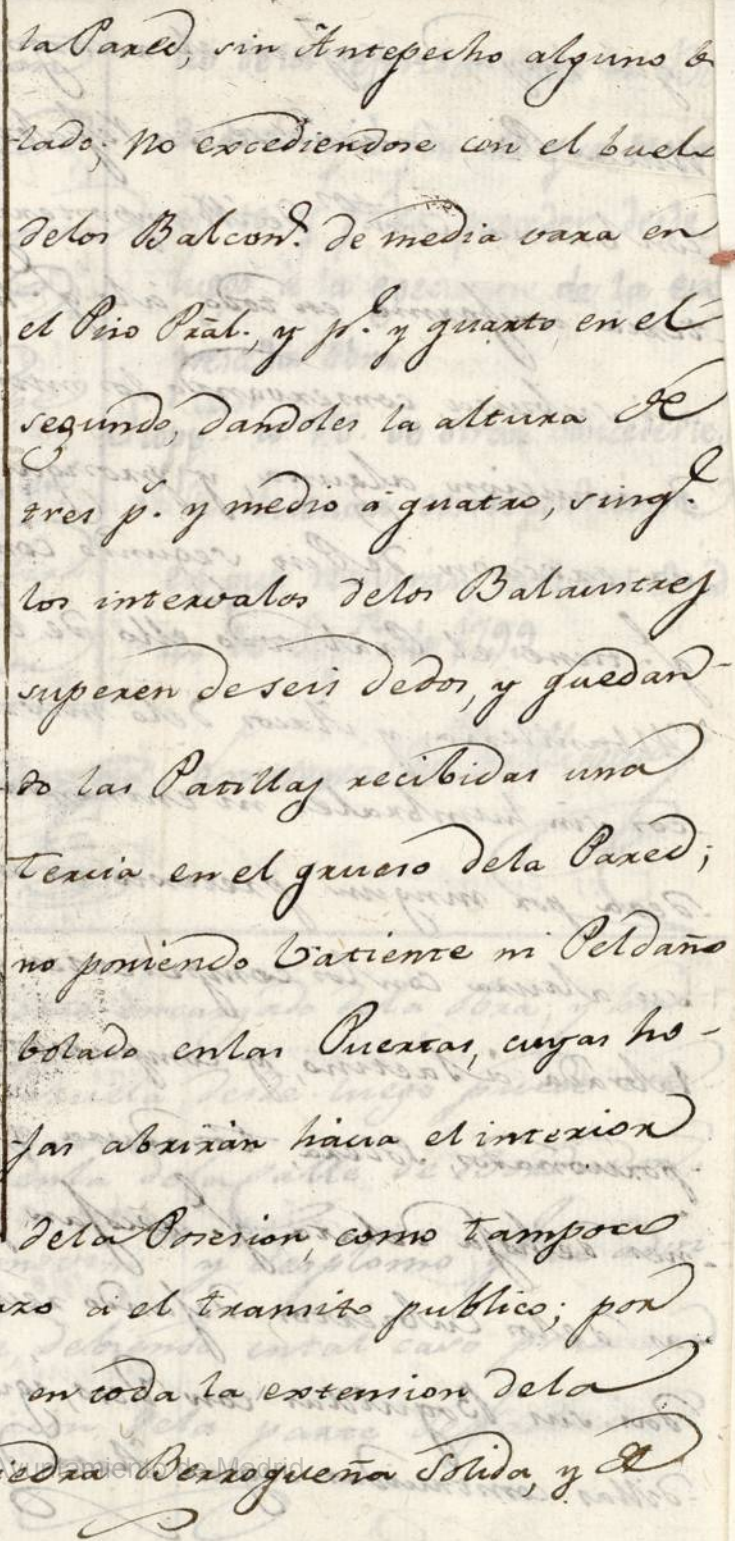 la Pared, sin Antepecho alguno bo
lado; no excediendose con el buelo
delos Balcon.s de media vara en
el Piso Pral., y p.e y quarto en el
segundo, dandoles la altura de
tres p.s y medio á quatro, sinq.e
los intervalos delos Balaustres
superen de seis dedos, y quedan-
do las Patillas recibidas una
tercia en el grueso dela Pared;
no poniendo batiente ni Peldaño
bolado enlas Puertas, cuyas ho-
jas abrirán hácia el interior
dela Posesion, como tampoco
ro á el transito publico; por
en toda la extension dela
iedra Berroqueña Solida, y de
Ayuntamiento de Madrid